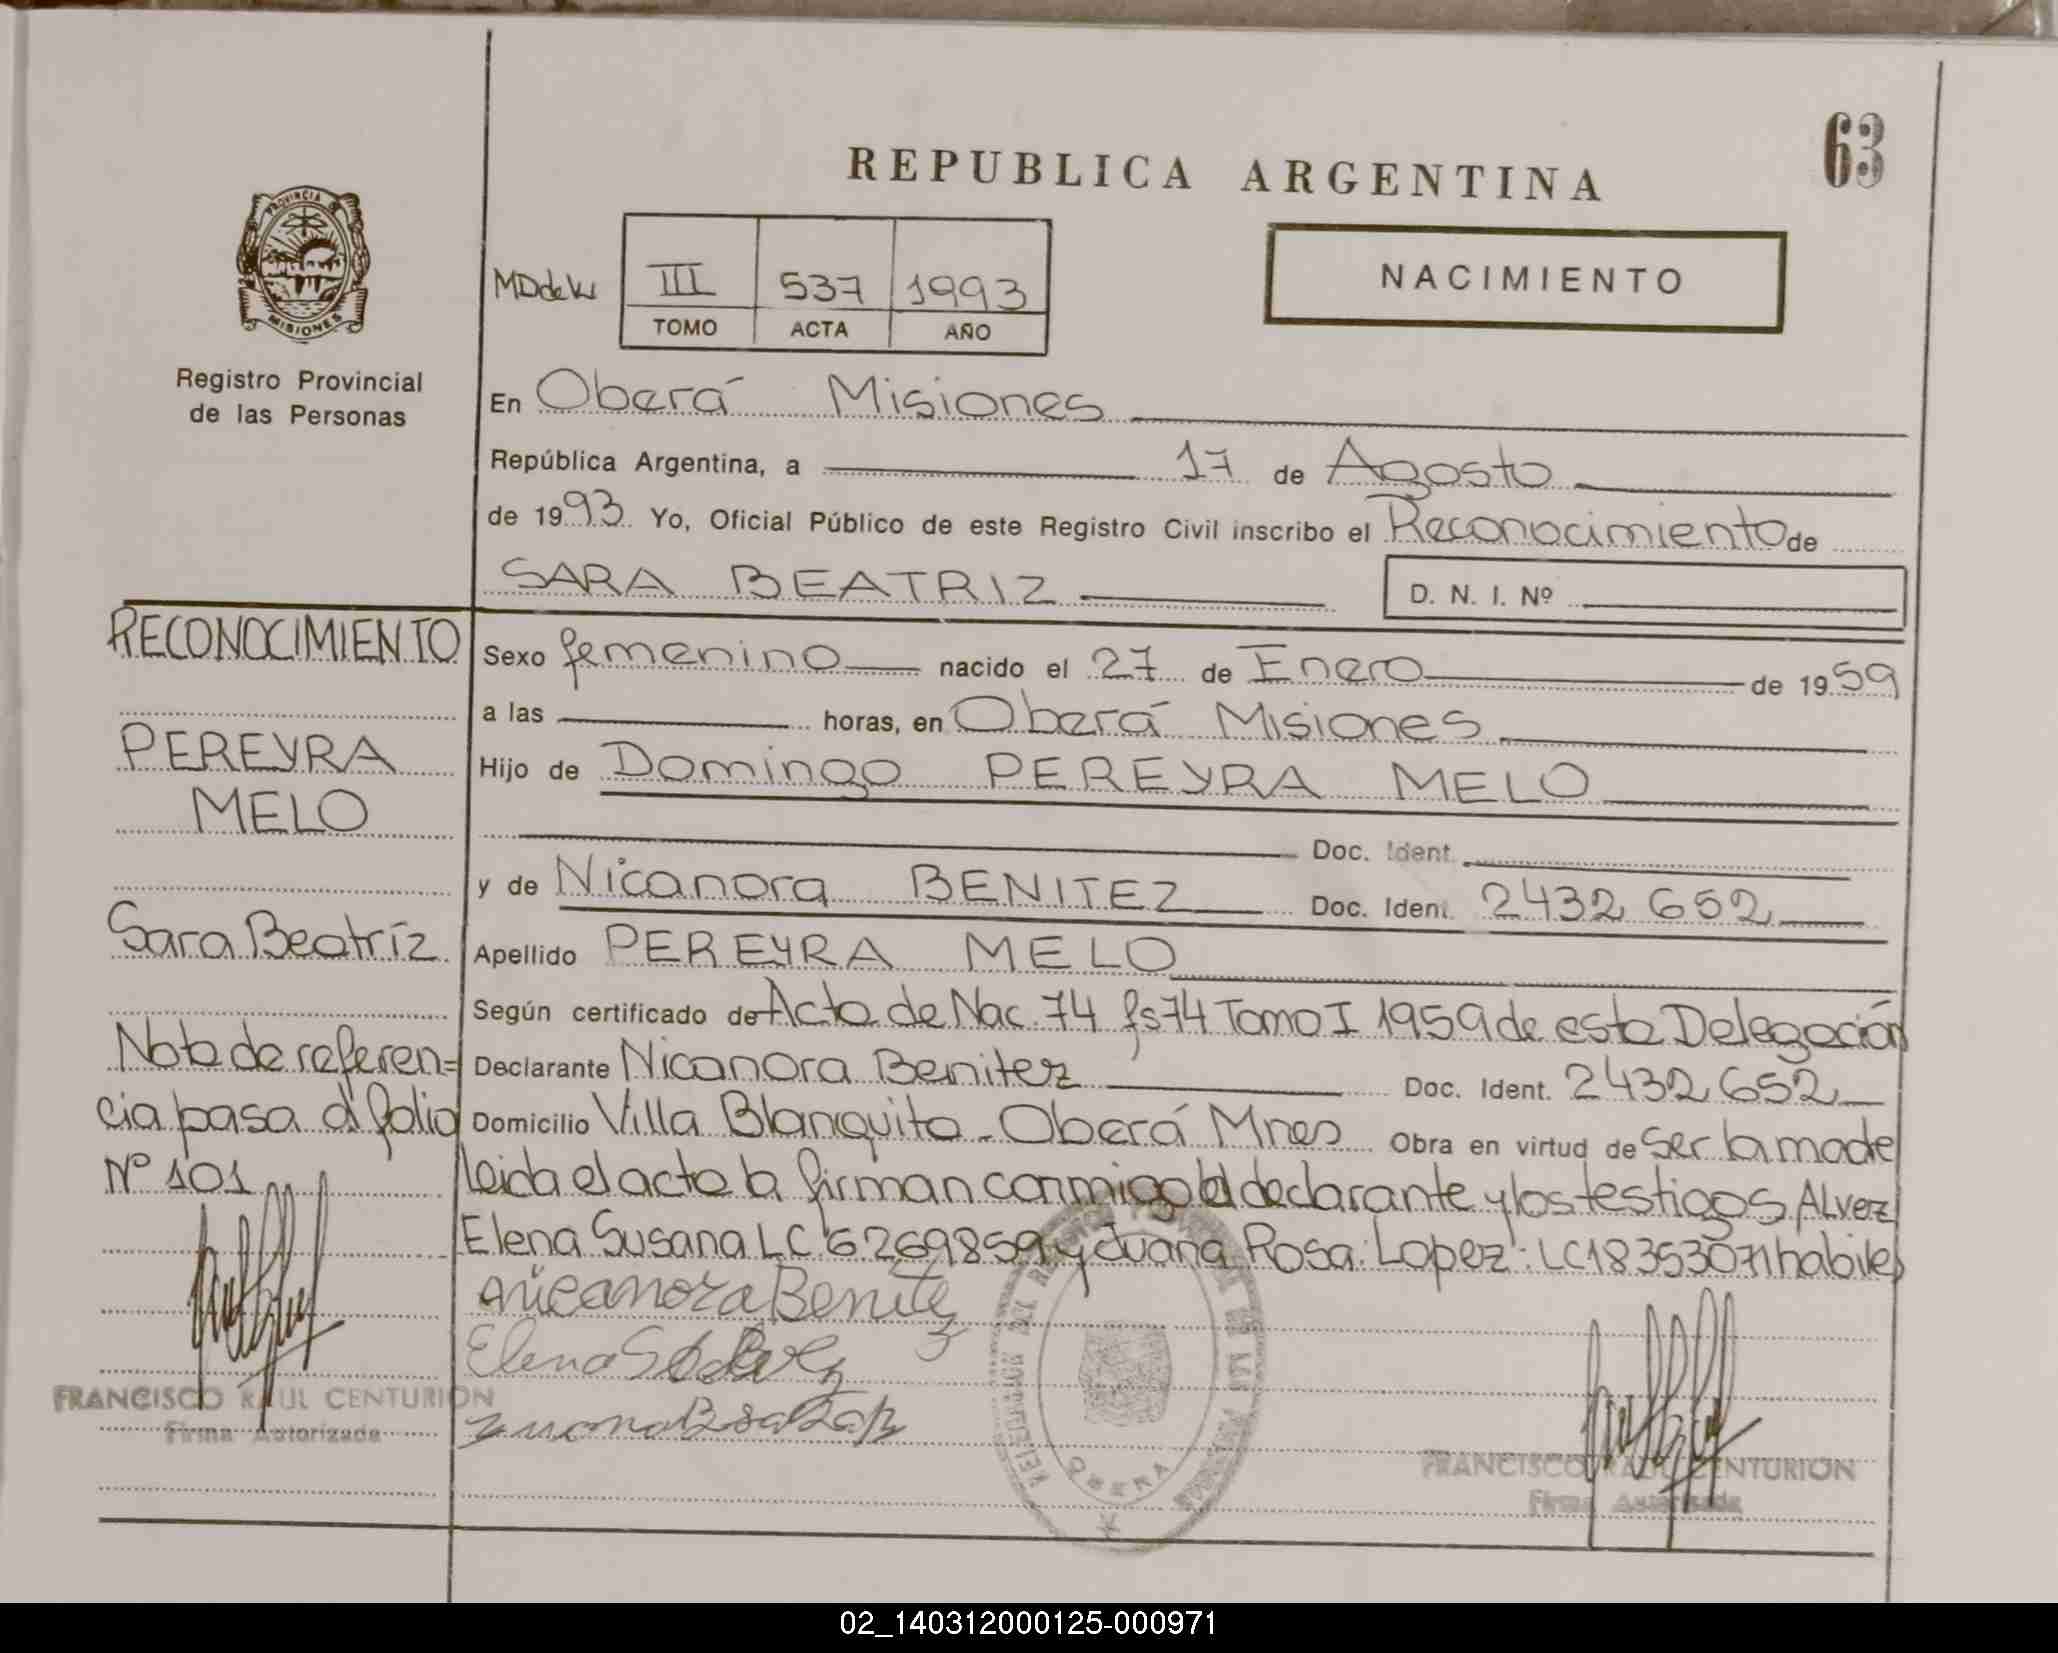 63
REPUBLICA ARGENTINA
PROVINCIA DE
MISIONES
Registro Provincial
de las Personas
III 537 1993
TOMO ACTA AÑO
NACIMIENTO
En Oberá Misiones
República Argentina, a 17 de Agosto
de 1993. Yo, Oficial Público de este Registro Civil inscribo el Reconocimiento de
SARA BEATRIZ D. N. I. Nº
RECONOCIMIENTO
PEREYRA
MELO
Sara Beatriz
Nota de referen=
cia pasa al folio
Nº 101
FRANCISCO RAUL CENTURION
Firma Autorizada
Sexo femenino nacido el 27 de Enero de 1959
a las horas, en Oberá Misiones
Hijo de Domingo PEREYRA MELO
Doc. Ident.
y de Nicanora BENITEZ Doc. Ident. 2432652
Apellido PEREYRA MELO
Según certificado de Acta de Nac. 74 fs 74 Tomo I 1959 de esta Delegación
Declarante Nicanora Benitez Doc. Ident. 2432652
Domicilio Villa Blanquita - Oberá Mnes Obra en virtud de ser la madre
leida el acta la firman conmigo el declarante y los testigos Alvez
Elena Susana LC 6269859 y Juana Rosa Lopez: LC 18353071 habiles
Nicanora Benitez
Elena
OBERA
FRANCISCO RAUL CENTURION
Firma Autorizada
02_140312000125-000971